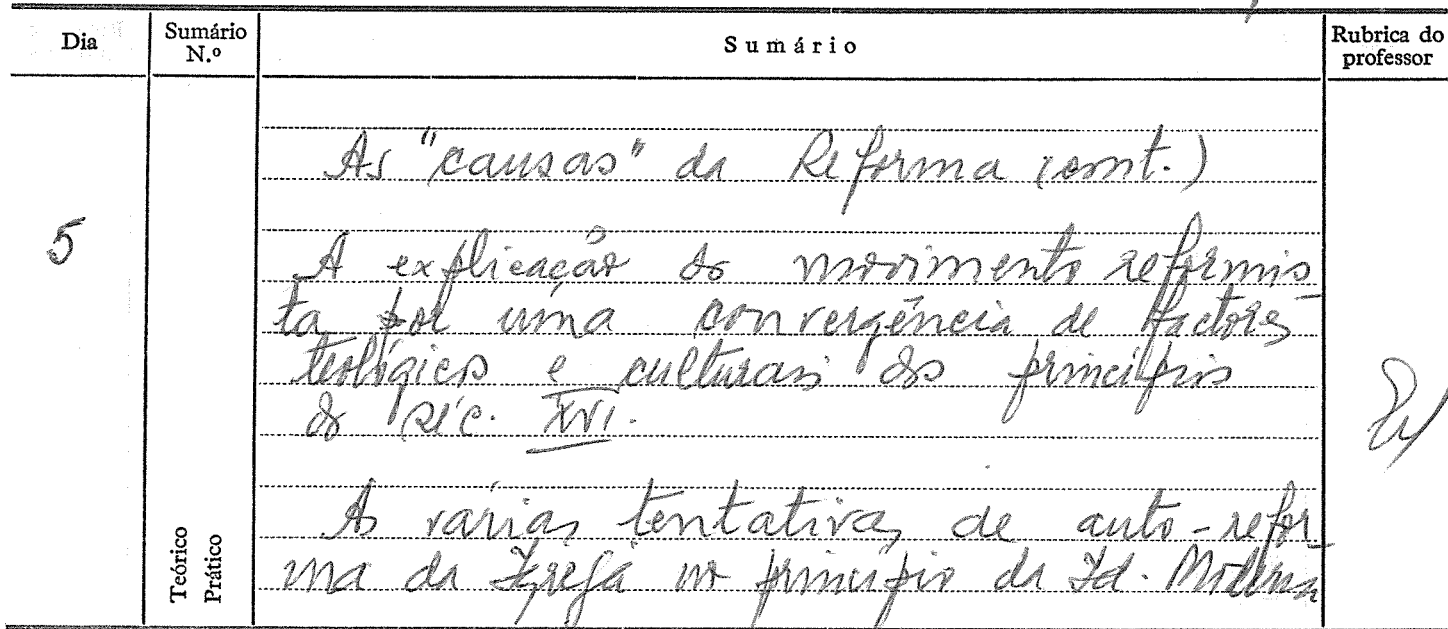 Dia
Sumário N.º
Sumário
Rubrica do professor
As "causas" da Reforma (cont.)
5
A explicação do movimento reformis
ta por uma convergência de factores
teológicos e culturais dos princípios
do séc. XVI.
As várias tentativas de auto-refor
ma da Igreja no princípio da Id. Moderna
Teórico
Prático